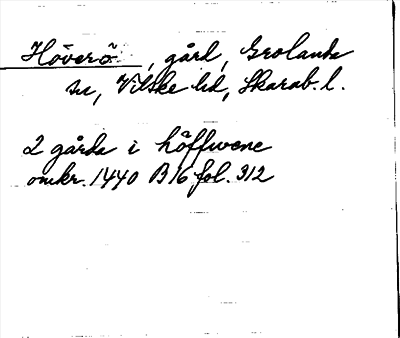 Höverö, gård, Grolanda
sn, Vilske hd, Skarab. l.
2 gårda i höffwene
omkr. 1440 B16 fol. 312